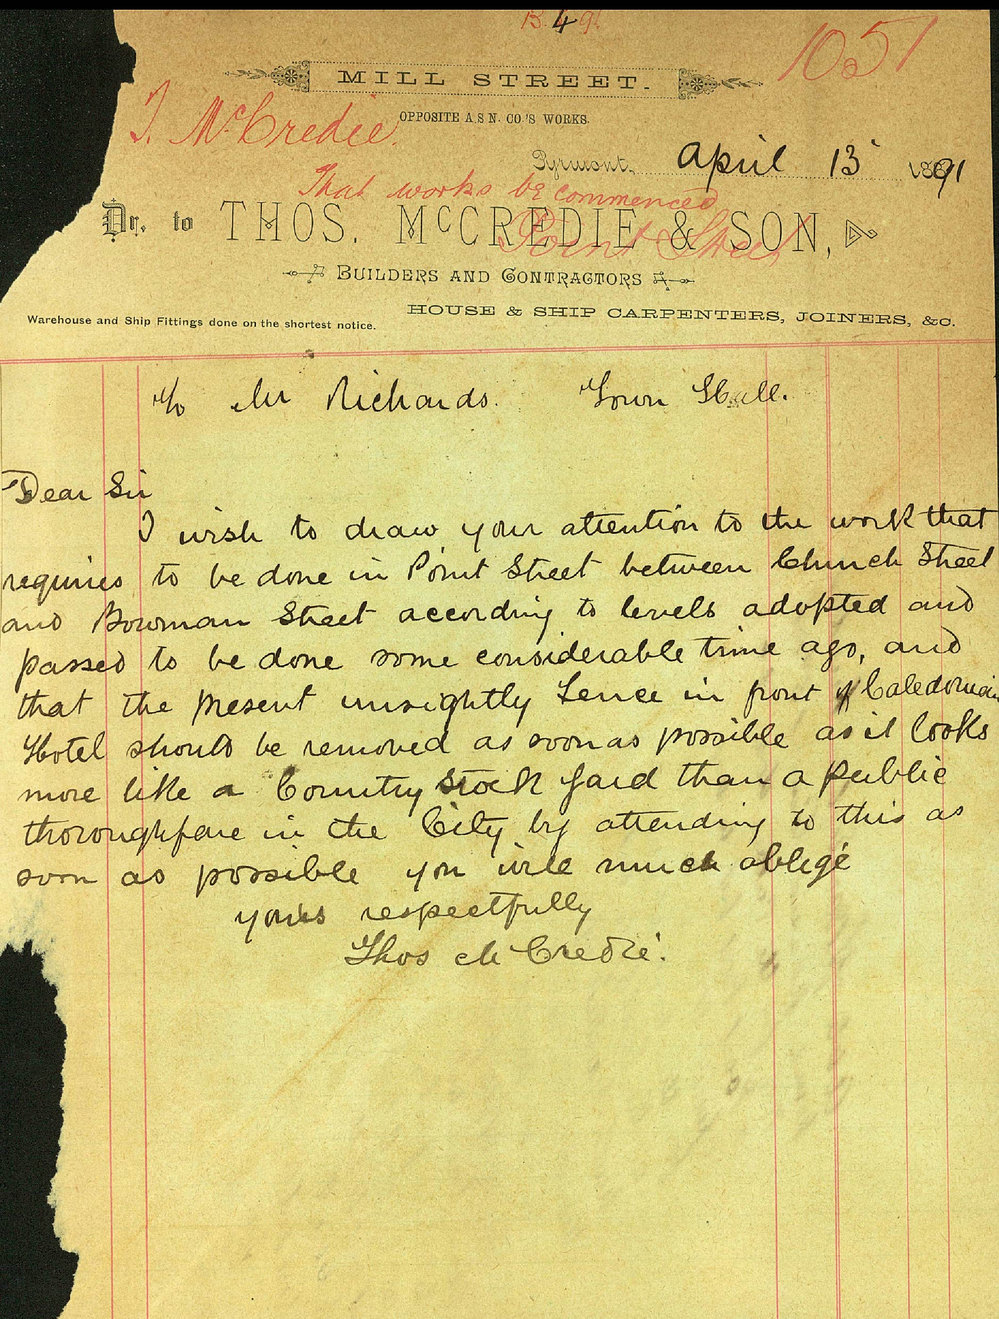 13.4.91
1051
MILL STREET.
T. McCredie.
OPPOSITE A.S.N. CO.'S WORKS.
Pyrmont, April 13 1891
That works be commenced
Point Street
Dr. to THOS. McCREDIE & SON,
BUILDERS AND CONTRACTORS
HOUSE & SHIP CARPENTERS, JOINERS, &C.
Warehouse and Ship Fittings done on the shortest notice.
To Mr Richards. Town Hall.
Dear Sir
I wish to draw your attention to the work that
requires to be done in Point Street between Church Street
and Bowman Street according to levels adopted and
passed to be done some considerable time ago, and
that the present unsightly Fence in front of Caledonian
Hotel should be removed as soon as possible as it looks
more like a Country Stock Yard than a Public
thoroughfare in the City by attending to this as
soon as possible you will much oblege
yours respectfully
Thos McCredie.